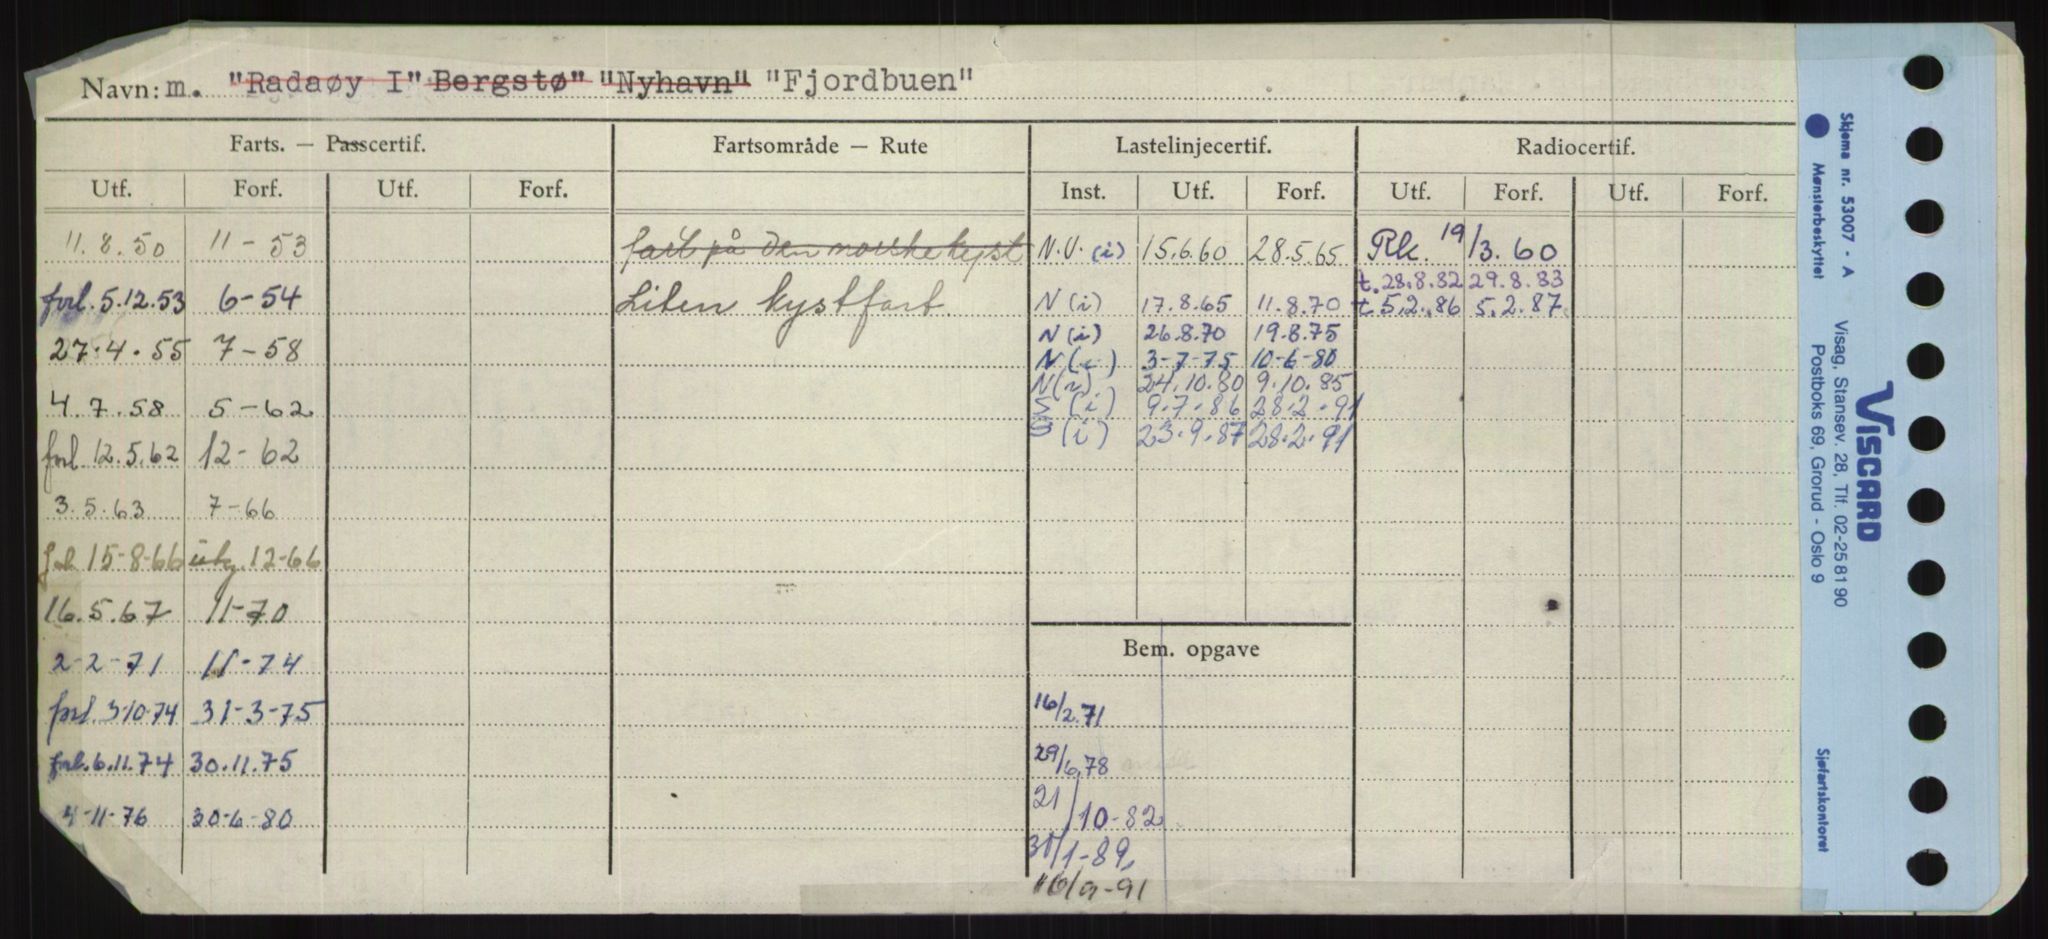 Navn: m. "Radaøy I" Bergstø" "Nyhavn" "Fjordbuen"
Farts. — Passcertif. Fartsområde — Rute Lastelinjecertif. Radiocertif.
Utf. Forf. Utf. Forf. Inst. Utf. Forf. Utf. Forf. Utf. Forf.
11.8.50 11-53 fart på den norske kyst N.V. (i) 15.6.60 28.5.65 Rk. 19/3.60
t. 28.8.82 29.8.83
forl. 5.12.53 6-54 Liten kystfart. N (i) 17.8.65 11.8.70 t. 5.2.86 5.2.87.
N (i) 26.8.70 19.8.75
27.4.55 7-58 N (i) 3-7-75 10-6-80
N (i) 24.10.80 9.10.85
4.7.58 5-62 S (i) 9.7.86 28.2.91
S (i) 23.9.87 28.2.91
forl. 12.5.62 12-62
3.5.63 7-66
forl. 15-8-66 12-66
16.5.67 11-70
Bem. opgave
2-2-71 11-74
forl. 3-10-74 31-3-75 16/2.71
forl. 6.11.74 30.11.75 29/6.78
4-11-76 30-6-80 21/10-82
31/1-89,
16/9-91
Skjema nr. 53007 - A
Mønsterbeskyttet
VISCARD
Visag, Stansev. 28, Tlf. 02-25 81 90
Postboks 69, Grorud - Oslo 9
Sjøfartskontoret